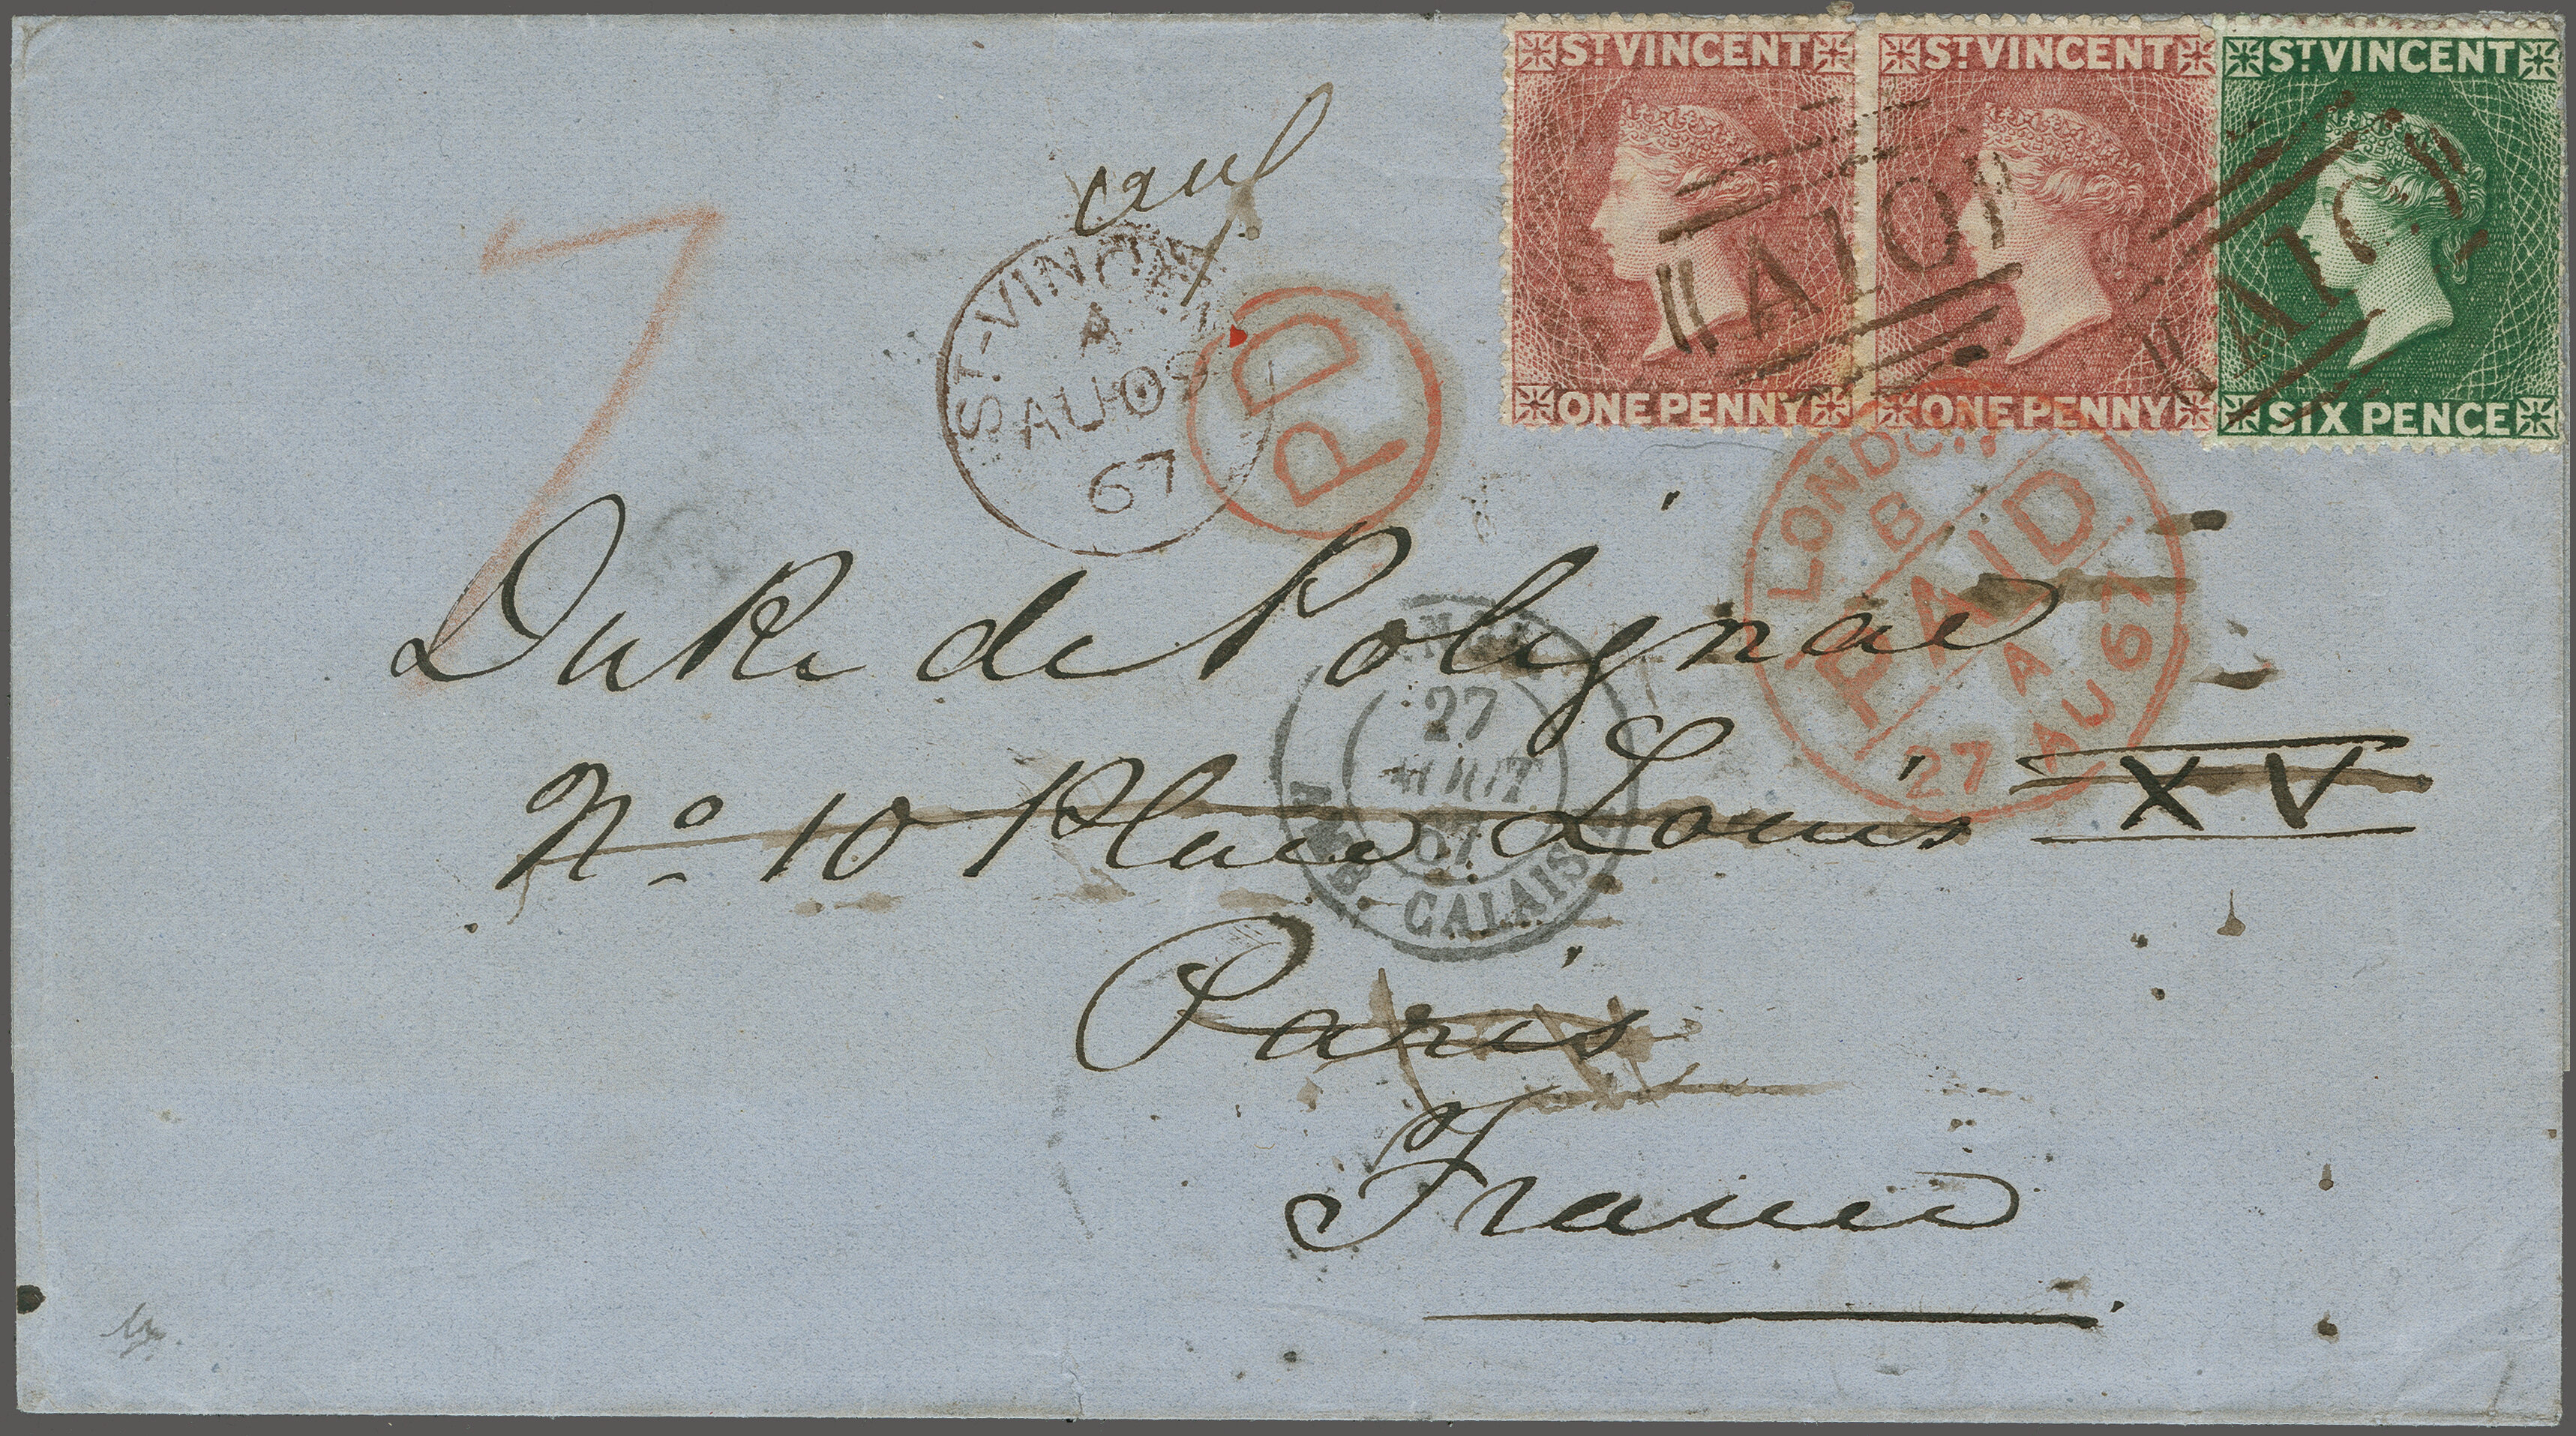 ST VINCENT
ONE PENNY
ST VINCENT
ONE PENNY
ST VINCENT
SIX PENCE
A10
A10
7
ST-VINCENT
A
AU 09
67
PD
LONDON
B
PAID
A
27 AU 67
Duke de Polignac
No 10 Place Louis XV
Paris
France
27
AOUT
67
AMB. CALAIS